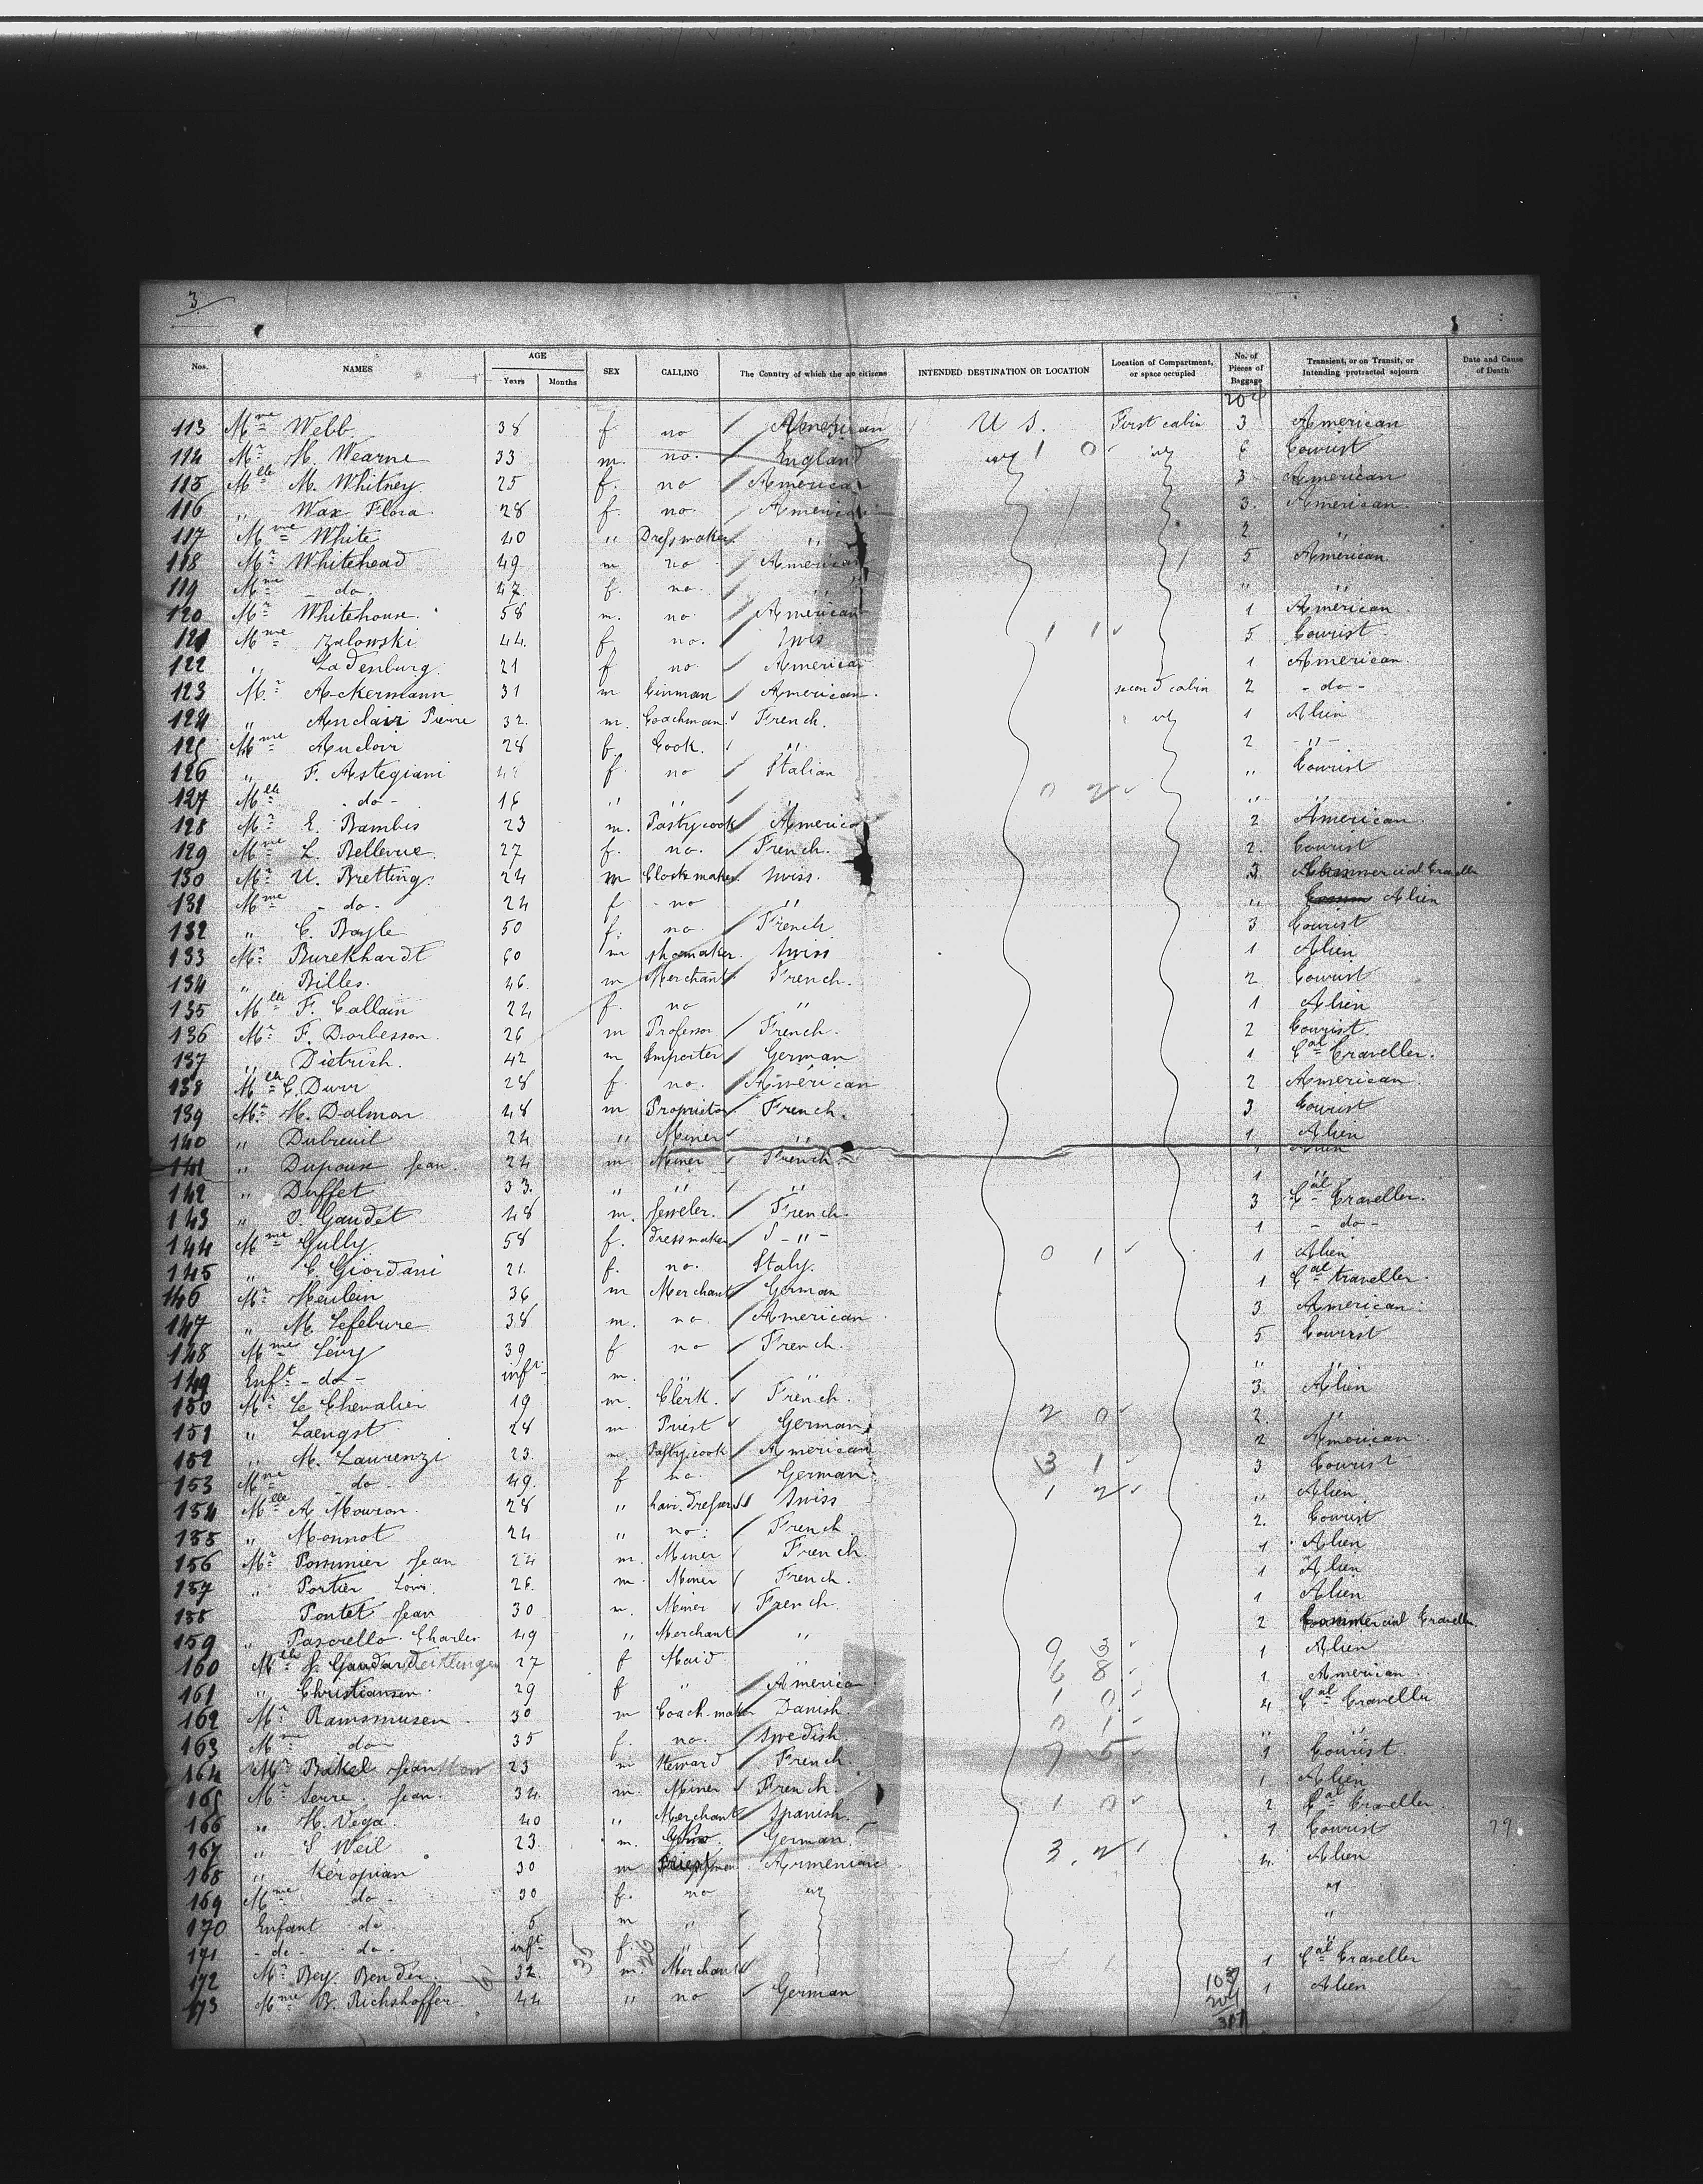 3
Nos. NAMES AGE Years Months SEX CALLING The Country of which the are citizens INTENDED DESTINATION OR LOCATION Location of Compartment, or space occupied No. of Pieces of Baggage Transient, or on Transit, or Intending protracted sojourn Date and Cause of Death
204
113 Mme Webb 38 f no American U S. First cabin 3 American
114 Mr H. Wearne 33 m. no. England 1 0 6 Tourist
115 Mlle M. Whitney 25 f. no American 3 American
116 " Wax Flora 28 f. no. American 3. American
117 Mme White 40 " Dressmaker " 2 "
118 Mr Whitehead 49 m no American 5 American
119 Mme do. 47 f. no. " " "
120 Mr Whitehouse. 58 m. no. American 1 American
121 Mme Zalowski 44. f no. Swis 1 1 5 Tourist
122 " Ladenburg 21 f no America 1 American.
123 Mr Ackermann 31 m American. second cabin 2 - do -
124 " Auclair Pierre 32. m. Coachman French. 1 Alien
125 Mme Auclair 28 f. Cook. " 2 - " -
126 " F. Astegiani f. no Italian " Tourist
127 Mlle - do - 16 " " " 0 2 " "
128 Mr E. Bambis 23 m. Pastrycook America 2 American
129 Mme L. Bellevue 27 f. no. French. 2. Tourist
130 Mr U. Bretting 24 m Clockmaker. Swiss. 3 Commercial Traveller
131 Mme - do - 24 f - no " " Alien
132 " C. Bayle 50 f. no. French 3 Tourist
133 Mr Burekhardt 60 m shoemaker. Swiss 1 Alien
134 " Billes. 46. m Merchant French. 2 Tourist
135 Mlle F. Callain 24 f. no " 1 Alien
136 Mr F. Dorbesson. 26 m Professor French. 2 Tourist.
137 " Dietrich. 42 m Importer German 1 Cal Traveller.
138 Mlle C. Durr 28 f. no. American 2 American
139 Mr H. Dalmon 48 m Proprietor French. 3 Tourist
140 " Dubreuil 24 " Miner " 1 Alien
141 " Dupoux Jean. 24 m Miner French " Alien
142 " Duffet 33. " " " 1 "
143 " O. Gaudet 48 m. Jeweler. French. 3 Cal Traveller.
144 Mme Gully 58 f. Dressmaker - " - 1 - do -
145 " C. Giordani 21. f. no. Italy. 0 1 1 Alien
146 Mr Heulein 36 m Merchant German 1 Cal traveller.
147 " M. Lefebvre 38 m. no American 3 American.
148 Mme Levy 39 f no French. 5 Tourist
149 Enft - do - inft m. " " " "
150 Mr Le Chevalier 19 m. Clerk. French. 3. Alien
151 " Laengst 28 m. Priest German 2 0 2. "
152 " M. Laurenzi 23. m. Pastrycook American 2 American.
153 Mme do - 49. f no German 3 1 3 Tourist
154 Mlle A. Mouron. 28 " hair dresser Swiss 1 2 " Alien
155 " Monnot 24 " no. French 2. Tourist
156 Mr Pommier Jean 24 m. Miner French 1 Alien
157 " Portier Louis 26. m. Miner French. 1 Alien
158 Pontet Jean 30 m. Miner French. 1 Alien
159 " Pascrello Charles 49 " Merchant " 2 Commercial Traveller
160 Mlle J. Gaudard 27 f Maid " 9 3 1 Alien
161 " Christiansen. 29 f " America 6 8 1. American
162 Mr Ramsmusen 30 m Coach-maker Danish. 1 0 4 Cal Traveller
163 Mme do 35 f. no. Swedish. 0 1 "
164 Mr Bakel Jean 23 m Steward French. 7 5 1 Tourist.
165 Mr Serre. Jean. 34. m. Miner French. 1. Alien
166 " H. Vega. 40 " Merchant Spanish. 1 0 2 Cal Traveller.
167 " S Weil 23. m. German 1 Tourist 79
168 " Keropian 30 m Priest Armenian 3. 2 4. Alien
169 Mme do - 30 f. no "
170 Enfant do. 5 m " "
171 - do - do - inft f. " "
172 Mr Bey. Bender. 32. m. Merchant 1 Cal Traveller
173 Mme B. Richshoffer. 44 " no German 1 Alien
61 35 26
107
204
311